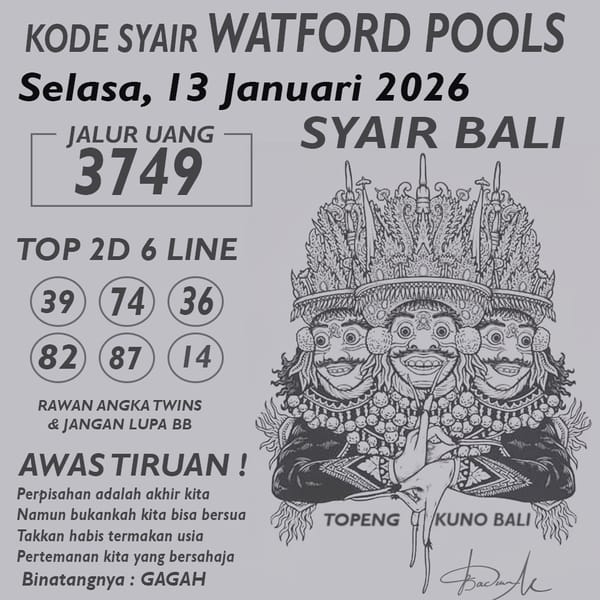 KODE SYAIR WATFORD POOLS
Selasa, 13 Januari 2026
SYAIR BALI
JALUR UANG
3749
TOP 2D 6 LINE
39 74 36
82 87 14
RAWAN ANGKA TWINS
& JANGAN LUPA BB
AWAS TIRUAN !
Perpisahan adalah akhir kita
Namun bukankah kita bisa bersua
Takkan habis termakan usia
Pertemanan kita yang bersahaja
Binatangnya : GAGAH
TOPENG KUNO BALI